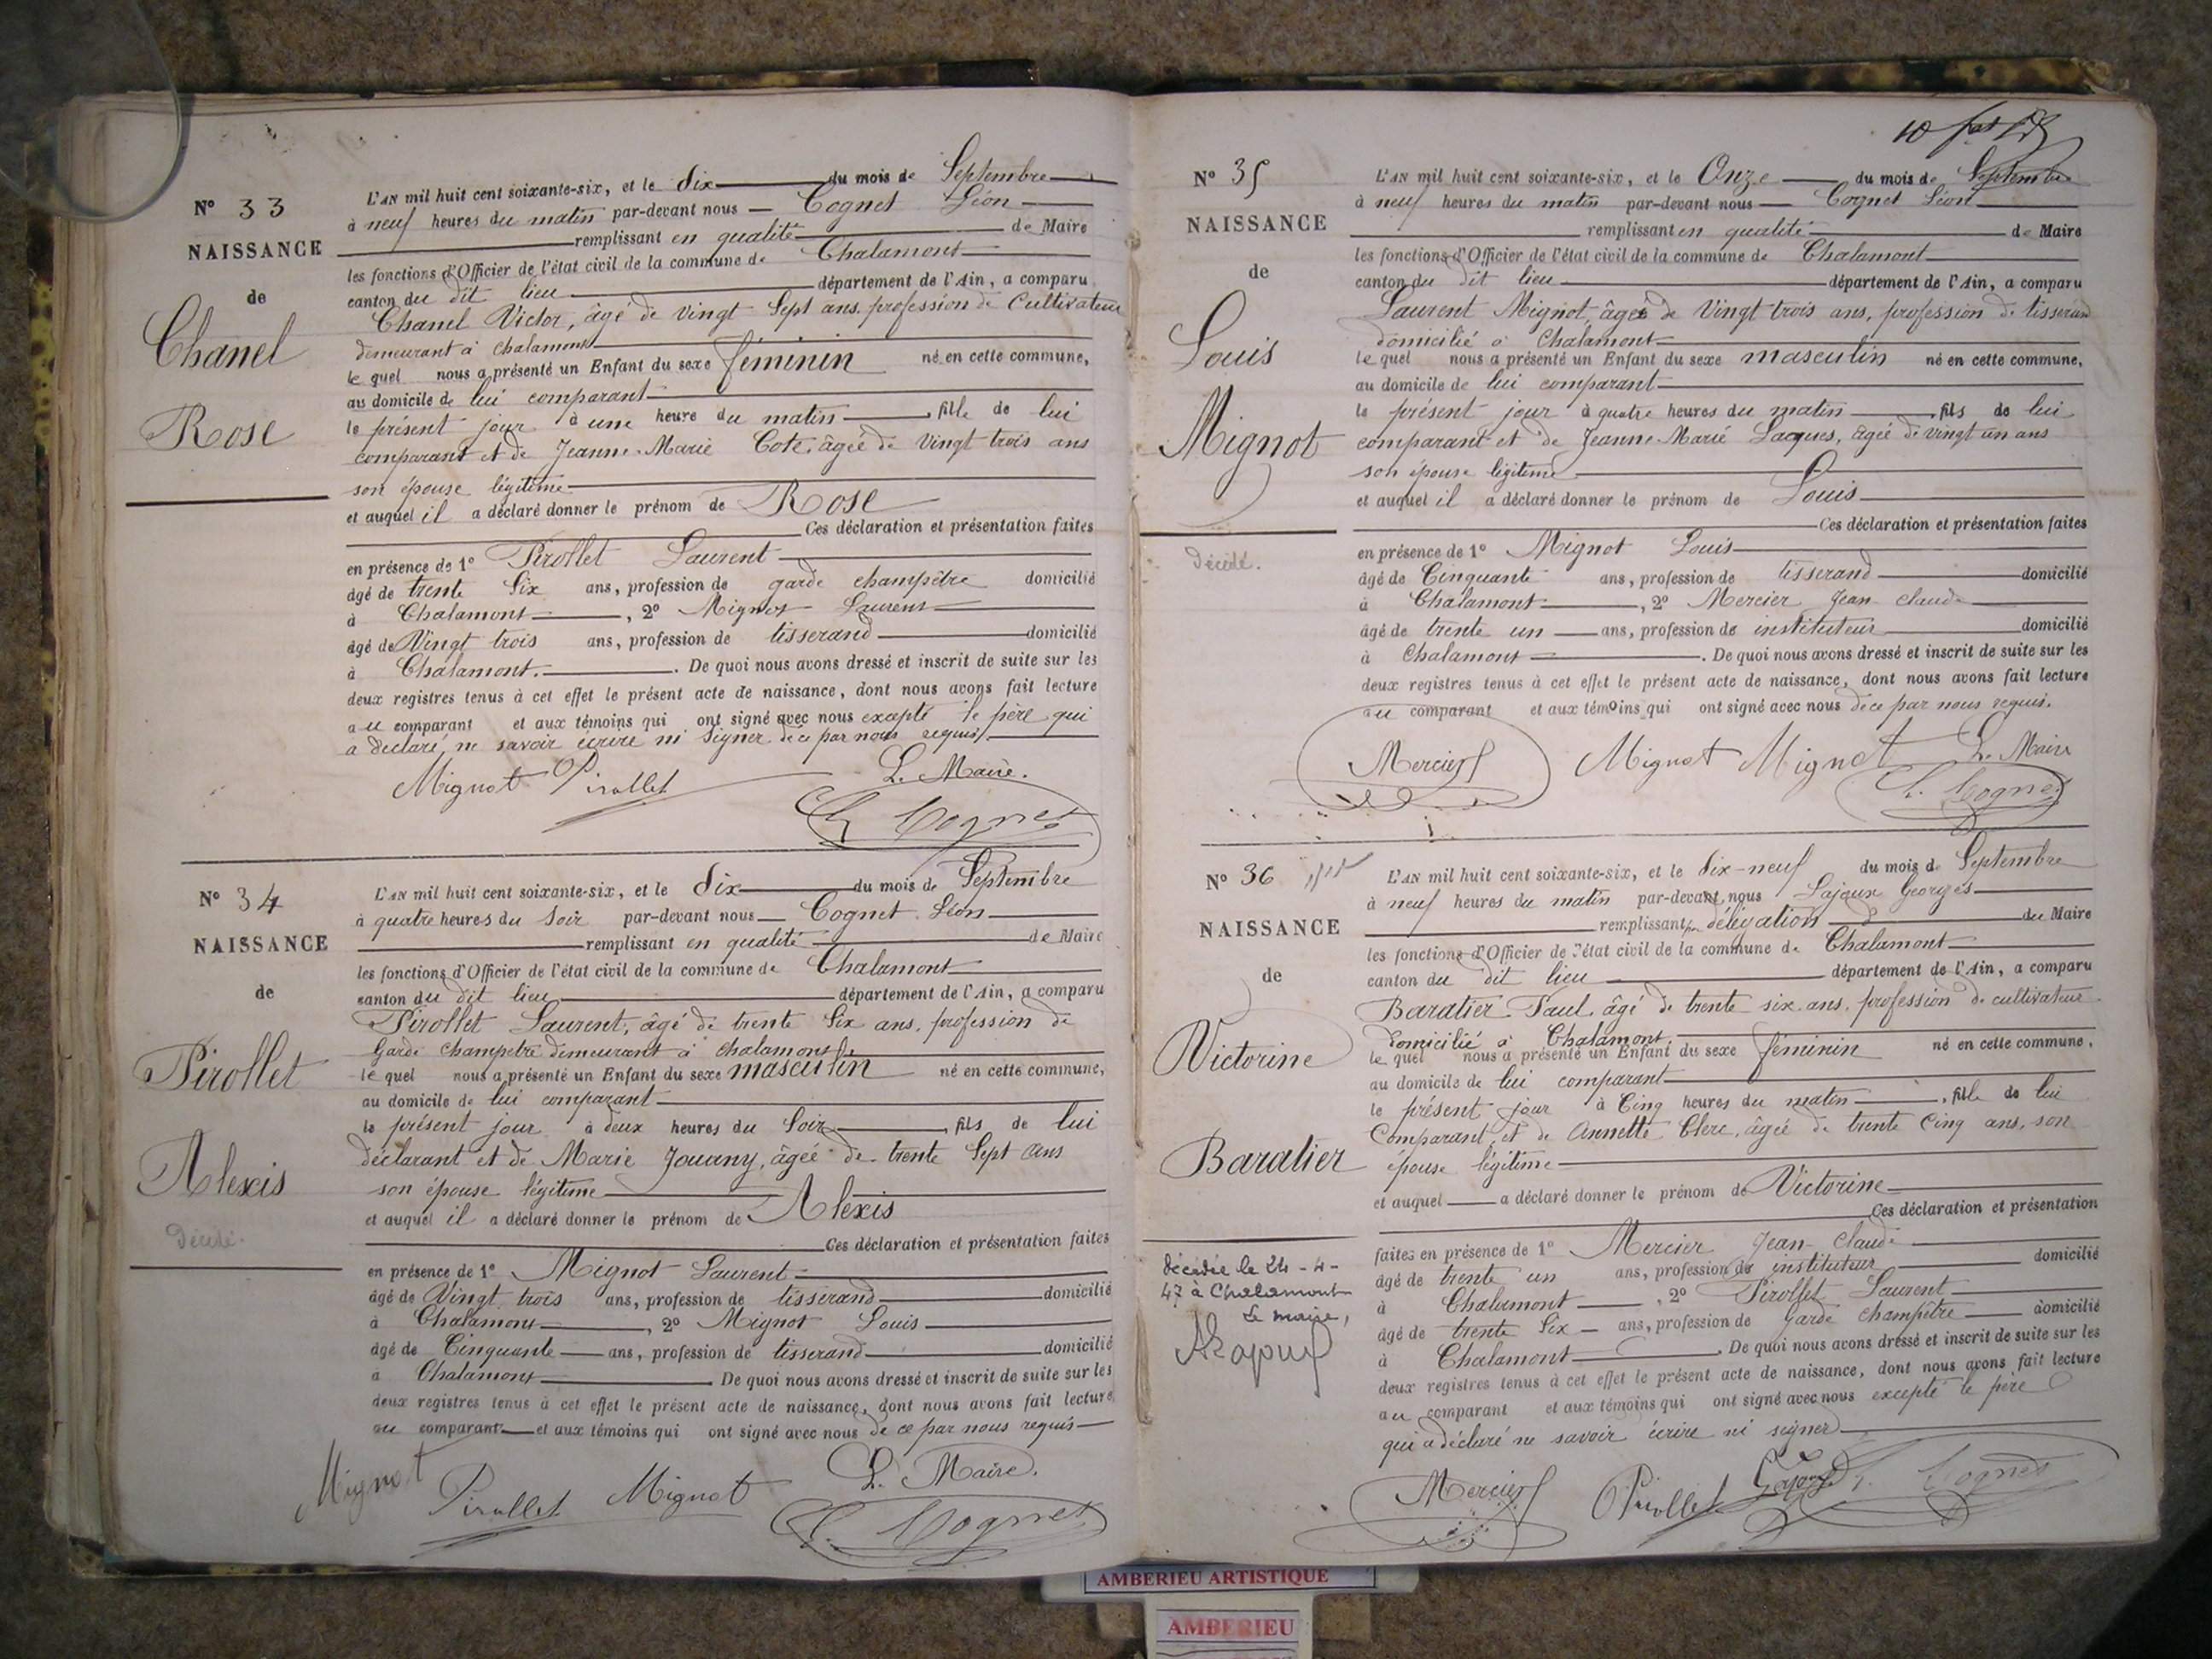 N° 33
NAISSANCE
de
Chanel
Rose
L'AN mil huit cent soixante-six, et le dix du mois de Septembre
à neuf heures du matin par-devant nous Cognet Léon
remplissant en qualité de Maire
les fonctions d'Officier de l'état civil de la commune de Chalamont
canton du dit lieu département de l'Ain, a comparu
Chanel Victor, âgé de vingt Sept ans, profession de Cultivateur
demeurant à Chalamont
le quel nous a présenté un Enfant du sexe féminin né en cette commune,
au domicile de lui comparant
le présent jour à une heure du matin, fille de lui
comparant et de Jeanne-Marie Cote, âgée de Vingt trois ans
son épouse légitime
et auquel il a déclaré donner le prénom de Rose
Ces déclaration et présentation faites
en présence de 1° Pirollet Laurent
âgé de trente Six ans, profession de garde champêtre domicilié
à Chalamont, 2° Mignot Laurent
âgé de Vingt trois ans, profession de tisserand domicilié
à Chalamont. De quoi nous avons dressé et inscrit de suite sur les
deux registres tenus à cet effet le présent acte de naissance, dont nous avons fait lecture
au comparant et aux témoins qui ont signé avec nous excepté le père qui
a déclaré ne savoir écrire ni signer de ce par nous requis.
Mignot Pirollet Le Maire.
L. Cognet
N° 34
NAISSANCE
de
Pirollet
Alexis
Décédé.
L'AN mil huit cent soixante-six, et le dix du mois de Septembre
à quatre heures du Soir par-devant nous Cognet Léon
remplissant en qualité de Maire
les fonctions d'Officier de l'état civil de la commune de Chalamont
canton du dit lieu département de l'Ain, a comparu
Pirollet Laurent, âgé de trente Six ans, profession de
Garde champêtre demeurant à Chalamont
le quel nous a présenté un Enfant du sexe masculin né en cette commune,
au domicile de lui comparant
le présent jour à deux heures du Soir, fils de lui
déclarant et de Marie Jouany, âgée de trente Sept ans
son épouse légitime
et auquel il a déclaré donner le prénom de Alexis
Ces déclaration et présentation faites
en présence de 1° Mignot Laurent
âgé de Vingt trois ans, profession de tisserand domicilié
à Chalamont, 2° Mignot Louis
âgé de Cinquante ans, profession de tisserand domicilié
à Chalamont. De quoi nous avons dressé et inscrit de suite sur les
deux registres tenus à cet effet le présent acte de naissance, dont nous avons fait lecture
au comparant et aux témoins qui ont signé avec nous de ce par nous requis
Mignot Pirollet Mignot Le Maire.
L. Cognet
N° 35
NAISSANCE
de
Louis
Mignot
Décédé.
L'AN mil huit cent soixante-six, et le Onze du mois de Septembre
à neuf heures du matin par-devant nous Cognet Léon
remplissant en qualité de Maire
les fonctions d'Officier de l'état civil de la commune de Chalamont
canton du dit lieu département de l'Ain, a comparu
Laurent Mignot, âgé de Vingt trois ans, profession de tisserand
domicilié à Chalamont
le quel nous a présenté un Enfant du sexe masculin né en cette commune,
au domicile de lui comparant
le présent jour à quatre heures du matin, fils de lui
comparant et de Jeanne-Marie Jacques, âgée de vingt un ans
son épouse légitime
et auquel il a déclaré donner le prénom de Louis
Ces déclaration et présentation faites
en présence de 1° Mignot Louis
âgé de Cinquante ans, profession de tisserand domicilié
à Chalamont, 2° Mercier Jean Claude
âgé de trente un ans, profession de instituteur domicilié
à Chalamont. De quoi nous avons dressé et inscrit de suite sur les
deux registres tenus à cet effet le présent acte de naissance, dont nous avons fait lecture
au comparant et aux témoins qui ont signé avec nous de ce par nous requis.
Mercier Mignot Mignot Le Maire
L. Cognet
N° 36
NAISSANCE
de
Victorine
Baratier
Décédée le 24-4-
47 à Chalamont
Le maire,
L'AN mil huit cent soixante-six, et le dix-neuf du mois de Septembre
à neuf heures du matin par-devant nous Lajoux Georges
remplissant par délégation du Maire
les fonctions d'Officier de l'état civil de la commune de Chalamont
canton du dit lieu département de l'Ain, a comparu
Baratier Paul âgé de trente six ans, profession de cultivateur
domicilié à Chalamont
le quel nous a présenté un Enfant du sexe féminin né en cette commune,
au domicile de lui comparant
le présent jour à Cinq heures du matin, fille de lui
Comparant et de Annette Clerc, âgée de trente Cinq ans, son
épouse légitime
et auquel a déclaré donner le prénom de Victorine
Ces déclaration et présentation
faites en présence de 1° Mercier Jean Claude
âgé de trente un ans, profession de instituteur domicilié
à Chalamont, 2° Pirollet Laurent
âgé de trente Six ans, profession de Garde champêtre domicilié
à Chalamont. De quoi nous avons dressé et inscrit de suite sur les
deux registres tenus à cet effet le présent acte de naissance, dont nous avons fait lecture
au comparant et aux témoins qui ont signé avec nous excepté le père
qui a déclaré ne savoir écrire ni signer
Mercier Pirollet Lajoux L. Cognet
AMBERIEU ARTISTIQUE
AMBERIEU